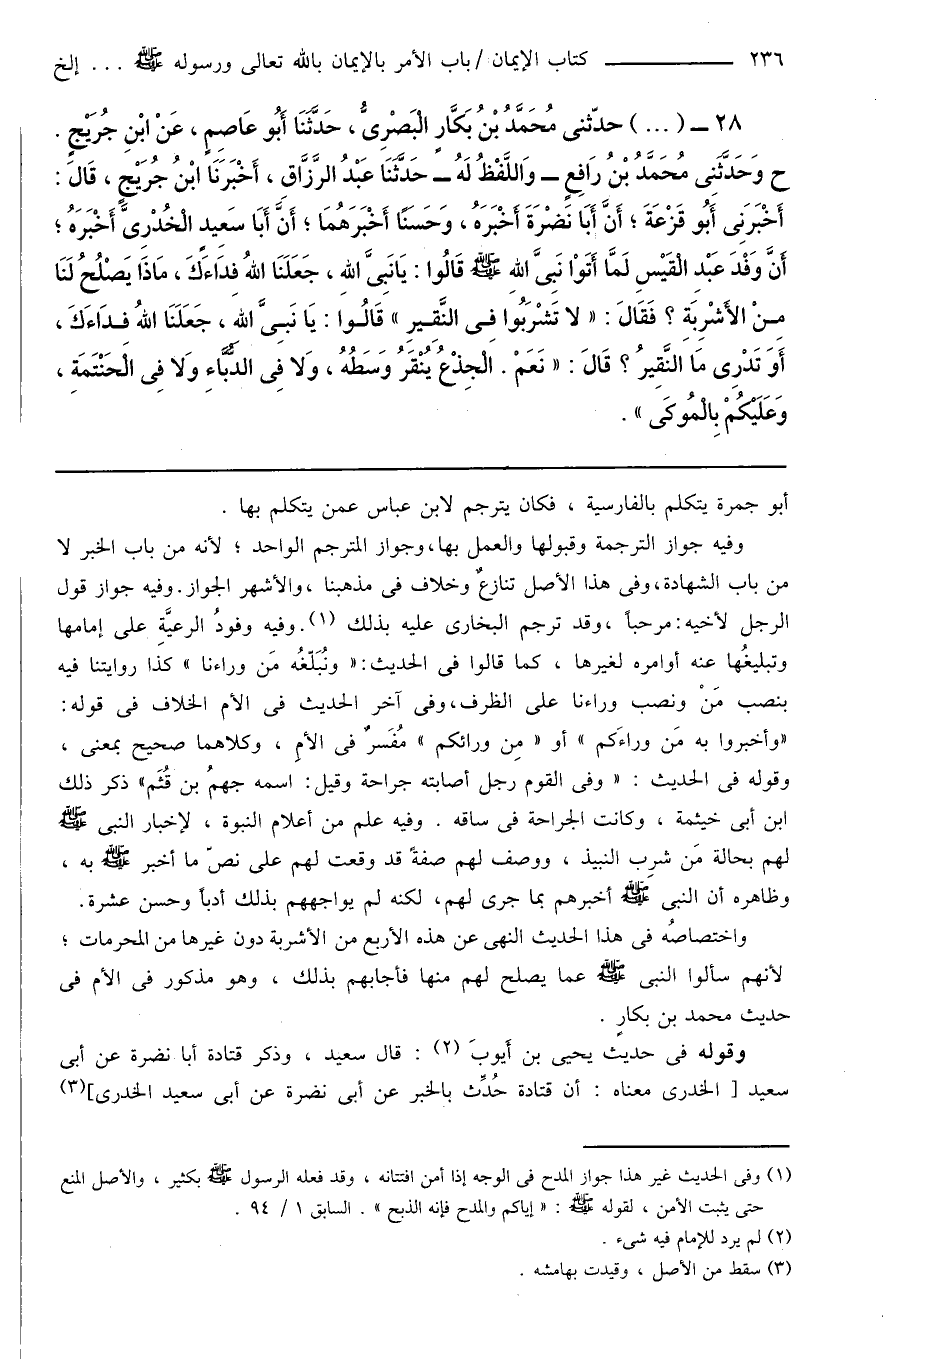 ٢٣٦ ــــــــــ كتاب الإيمان / باب الأمر بالإيمان بالله تعالى ورسوله ﷺ ... إلخ
٢٨ ــ ( ... ) حدّثنى مُحَمَّدُ بْنُ بَكَّارٍ الْبَصْرِىُّ ، حَدَّثَنَا أَبُو عَاصِمٍ ، عَنْ ابْنِ جُرَيْجٍ .
ح وَحَدَّثَنِى مُحَمَّدُ بْنُ رَافِعٍ ــ وَاللَّفْظُ لَهُ ــ حَدَّثَنَا عَبْدُ الرَّزَّاقِ ، أَخْبَرَنَا ابْنُ جُرَيْجٍ ، قَالَ :
أَخْبَرَنِى أَبُو قَزْعَةَ ؛ أَنَّ أَبَا نَضْرَةَ أَخْبَرَهُ ، وَحَسَنًا أَخْبَرَهُمَا ؛ أَنَّ أَبَا سَعِيدٍ الْخُدْرِىَّ أَخْبَرَهُ ؛
أَنَّ وَفْدَ عَبْدِ الْقَيْسِ لَمَّا أَتَوْا نَبِىَّ اللهِ ﷺ قَالُوا : يَانَبِىَّ اللهِ ، جَعَلَنَا اللهُ فِدَاءَكَ ، مَاذَا يَصْلُحُ لَنَا
مِنْ الأَشْرِبَةِ ؟ فَقَالَ : « لا تَشْرَبُوا فِى النَّقِيرِ » قَالُوا : يَا نَبِىَّ اللهِ ، جَعَلَنَا اللهُ فِدَاءَكَ ،
أَوَ تَدْرِى مَا النَّقِيرُ ؟ قَالَ : « نَعَمْ . الْجِذْعُ يُنْقَرُ وَسَطُهُ ، وَلا فِى الدُّبَّاءِ وَلا فِى الْحَنْتَمَةِ ،
وَعَلَيْكُمْ بِالْمُوكَى » .
أبو جمرة يتكلم بالفارسية ، فكان يترجم لابن عباس عمن يتكلم بها .
وفيه جواز الترجمة وقبولها والعمل بها،وجواز المترجم الواحد ؛ لأنه من باب الخبر لا
من باب الشهادة،وفى هذا الأصل تنازعٌ وخلاف فى مذهبنا ،والأشهر الجواز.وفيه جواز قول
الرجل لأخيه:مرحباً ،وقد ترجم البخارى عليه بذلك (١).وفيه وفودُ الرعيَّة على إمامها
وتبليغُها عنه أوامره لغيرها ، كما قالوا فى الحديث:« ونُبَلّغُه مَن وراءنا » كذا روايتنا فيه
بنصب مَنْ ونصب وراءنا على الظرف،وفى آخر الحديث فى الأم الخلاف فى قوله:
«وأخبروا به مَن وراءَكم » أو « مِن ورائكم » مُفَسرٌ فى الأمِ ، وكلاهما صحيح بمعنى ،
وقوله فى الحديث : « وفى القوم رجل أصابته جراحة وقيل: اسمه جهمُ بن قُثَم» ذكر ذلك
ابن أبى خيثمة ، وكانت الجراحة فى ساقه . وفيه علم من أعلام النبوة ، لإخبار النبى ﷺ
لهم بحالة مَن شرِب النبيذ ، ووصف لهم صفةً قد وقعت لهم على نصّ ما أخبر ﷺ به ،
وظاهره أن النبى ﷺ أخبرهم بما جرى لهم، لكنه لم يواجههم بذلك أدباً وحسن عشرة.
واختصاصُه فى هذا الحديث النهى عن هذه الأربع من الأشربة دون غيرها من المحرمات ؛
لأنهم سألوا النبى ﷺ عما يصلح لهم منها فأجابهم بذلك ، وهو مذكور فى الأم فى
حديث محمد بن بكارٍ .
وقوله فى حديث يحيى بن أيوبَ (٢) : قال سعيد ، وذكر قتادة أبا نضرة عن أبى
سعيد [ الخدرى معناه : أن قتادة حُدِّث بالخبر عن أبى نضرة عن أبى سعيد الخدرى](٣)
(١) وفى الحديث غير هذا جواز المدح فى الوجه إذا أمن افتتانه ، وقد فعله الرسول ﷺ بكثير ، والأصل المنع
حتى يثبت الأمن ، لقوله ﷺ : « إياكم والمدح فإنه الذبح » . السابق ١ / ٩٤ .
(٢) لم يرد للإمام فيه شىء .
(٣) سقط من الأصل ، وقيدت بهامشه .